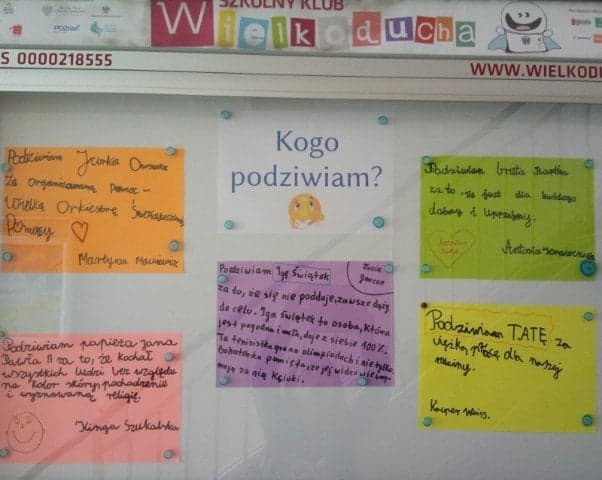 SZKOLNY KLUB
Wielkoducha
S 0000218555
WWW.WIELKODU
Kogo
podziwiam?
Podziwiam Jurka Owsiaka
Za organizowaną pomoc -
Wielką Orkiestrę Świąteczną
Pomocy
Martyna
Podziwiam brata Bartka
za to, że jest dla każdego
dobry i uprzejmy.
Antosia
Podziwiam Igę Świątek
Zuzia
za to, że się nie poddaje, zawsze dąży
do celu. Iga Świątek to osoba, która
jest pogodna i miła, daje z siebie 100%.
Ta tenisistka gra na olimpiadach i nie tylko.
Bohaterka pamięta że jej widzowie trzy-
mają za nią kciuki.
Podziwiam papieża Jana
Pawła II za to, że kochał
wszystkich ludzi bez względu
na kolor skóry, pochodzenie
i wyznawaną religię.
Kinga Szukalska
Podziwiam TATĘ za
ciężką pracę dla naszej
rodziny.
Kacper Weiss.